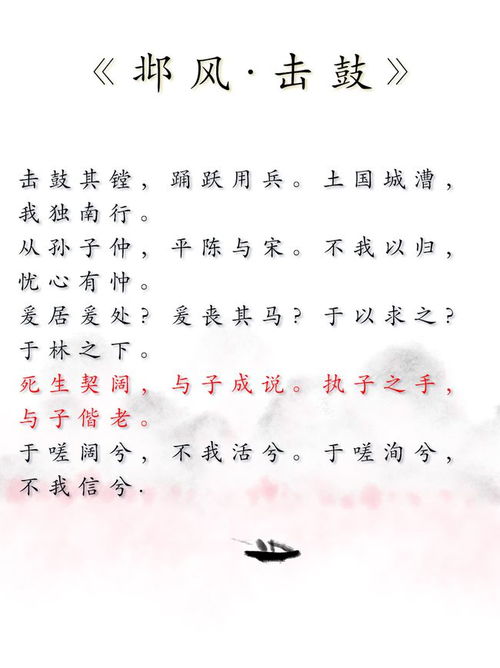 《邶风·击鼓》
击鼓其镗，踊跃用兵。土国城漕，
我独南行。
从孙子仲，平陈与宋。不我以归，
忧心有忡。
爰居爰处？爰丧其马？于以求之？
于林之下。
死生契阔，与子成说。执子之手，
与子偕老。
于嗟阔兮，不我活兮。于嗟洵兮，
不我信兮.